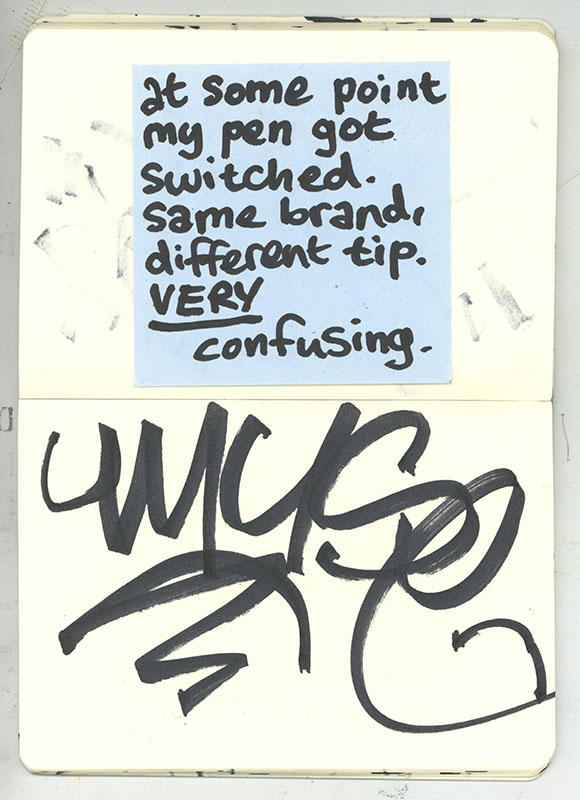 at some point
my pen got
switched.
same brand,
different tip.
VERY
confusing.
MUSE